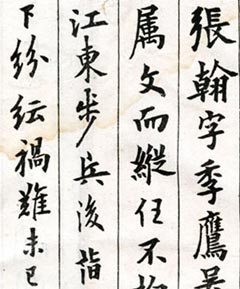 張翰字季鷹吳
属文而縱任不拘
江東步兵後詣
下紛紜禍難未已